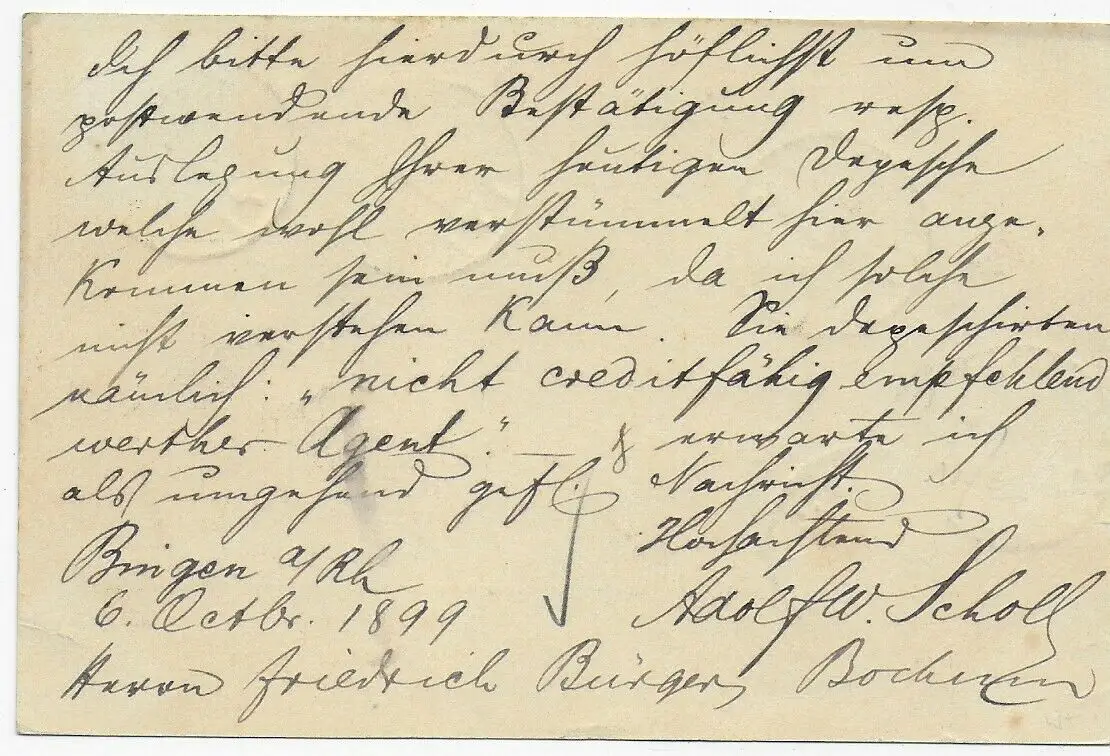 Ich bitte hierdurch höflichst um
postwendende Bestätigung resp.
Auslegung Ihrer heutigen Depesche
welche wohl verstümmelt hier ange-
kommen sein muß, da ich solche
nicht verstehen kann. Sie depeschirten
nämlich: „nicht creditfähig empfehlend
werther Agent." — & erwarte ich
als umgehend gefl. Nachricht.
Hochachtend
Bingen a/Rh
6. Octbr. 1899
Adolf W. Scholl
Herrn Friedrich Bürger, Bochum